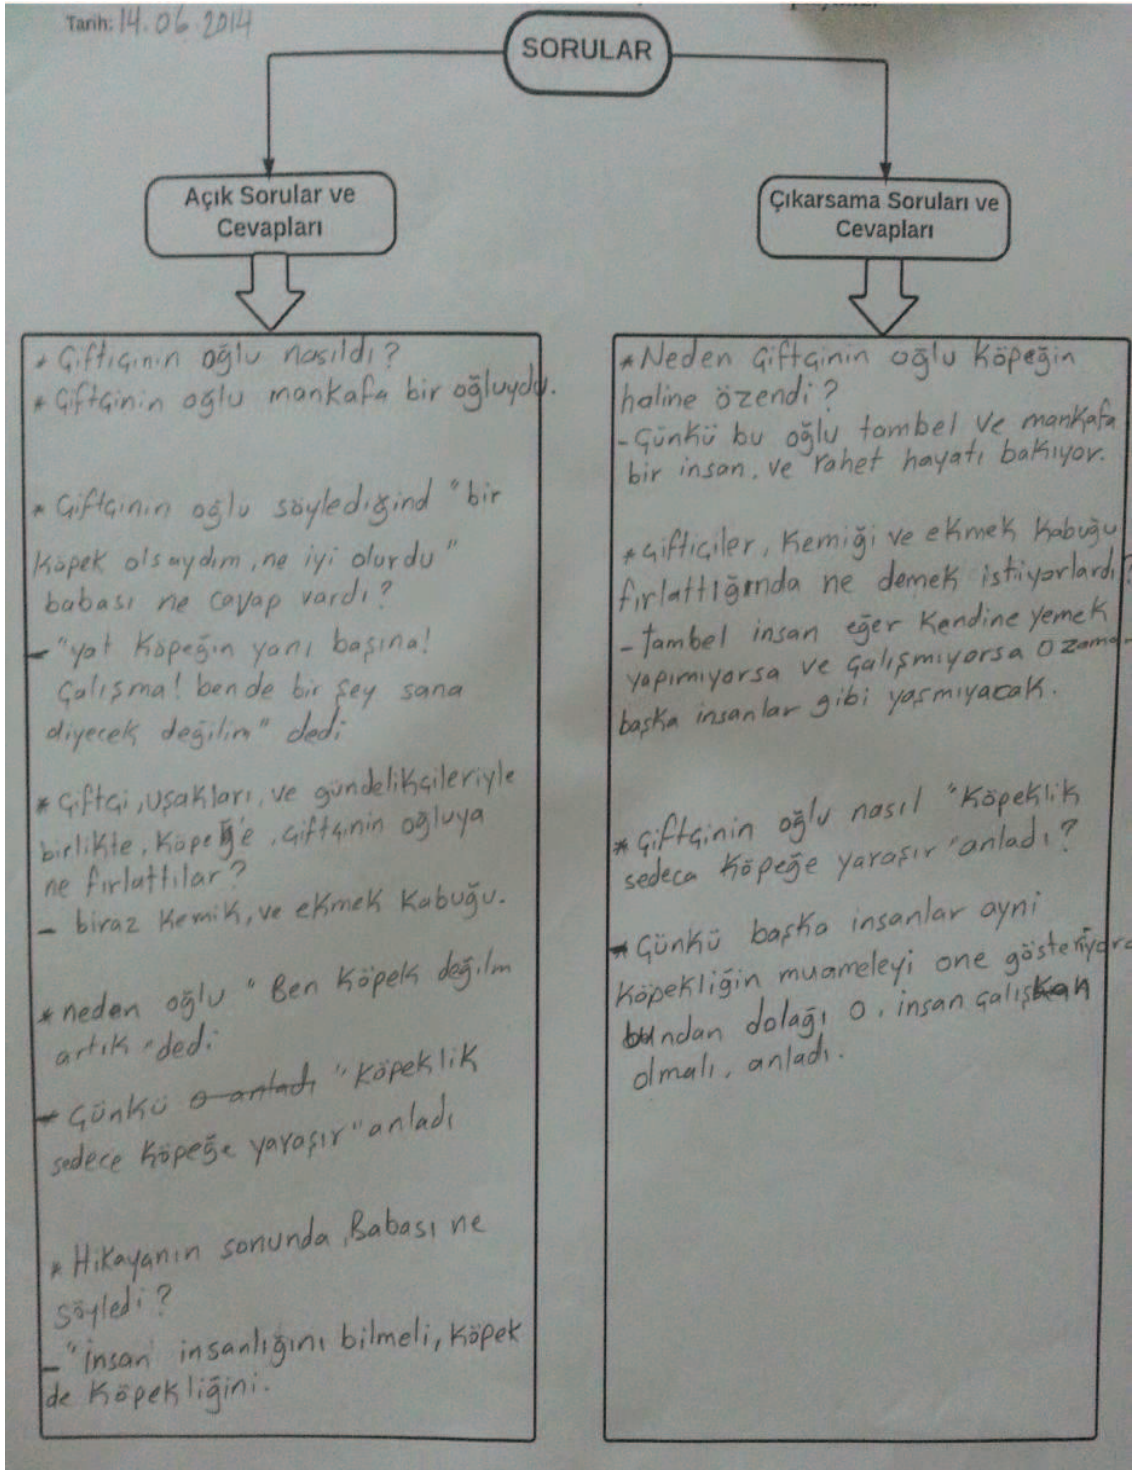 Tarih: 14.06.2014
SORULAR
Açık Sorular ve
Cevapları
* Çiftıçinin oğlu nasıldı?
* Çiftçinin oğlu mankafa bir oğluydu.
* Çiftçinin oğlu söyledığind "bir
köpek olsaydım, ne iyi olurdu"
babası ne cavap vardı?
- "yat köpeğin yanı başına!
Çalışma! ben de bir şey sana
diyecek değilim" dedi
* Çiftçi, uşakları, ve gündelikçileriyle
birlikte, köpeğe, çiftçinin oğluya
ne fırlattılar?
- biraz kemik, ve ekmek kabuğu.
* neden oğlu "Ben köpek değilm
artık" dedi
- Çünkü o anladı "köpeklik
sedece köpeğe yaraşır" anladı
* Hikayanın sonunda, Babası ne
söyledi?
- "insan insanlığını bilmeli, köpek
de köpekliğini.
Çıkarsama Soruları ve
Cevapları
* Neden Çiftçinin oğlu köpeğin
haline özendi?
- Çünkü bu oğlu tambel ve mankafa
bir insan. ve rahet hayatı bakıyor.
* Çiftiçiler, kemiği ve ekmek kabuğu
fırlattığında ne demek istiiyorlardı?
- tambel insan eğer kendine yemek
yapımıyorsa ve çalışmıyorsa o zaman
başka insanlar gibi yaşmıyacak.
* Çiftçinin oğlu nasıl "köpeklik
sedeca köpeğe yaraşır" anladı?
* Çünkü başka insanlar ayni
köpekliğin muameleyi one
bundan dolağı o, insan çalışkan
olmalı, anladı.